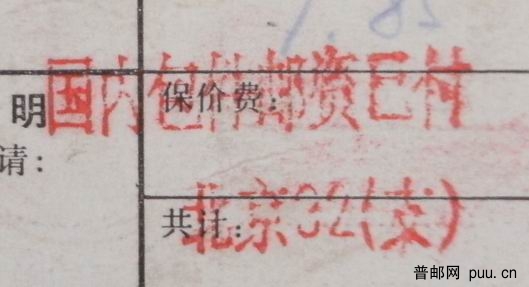 1.85
国内包件邮资已付
明
保价费：
请：
共计：
北京32(支)
普邮网 puu.cn